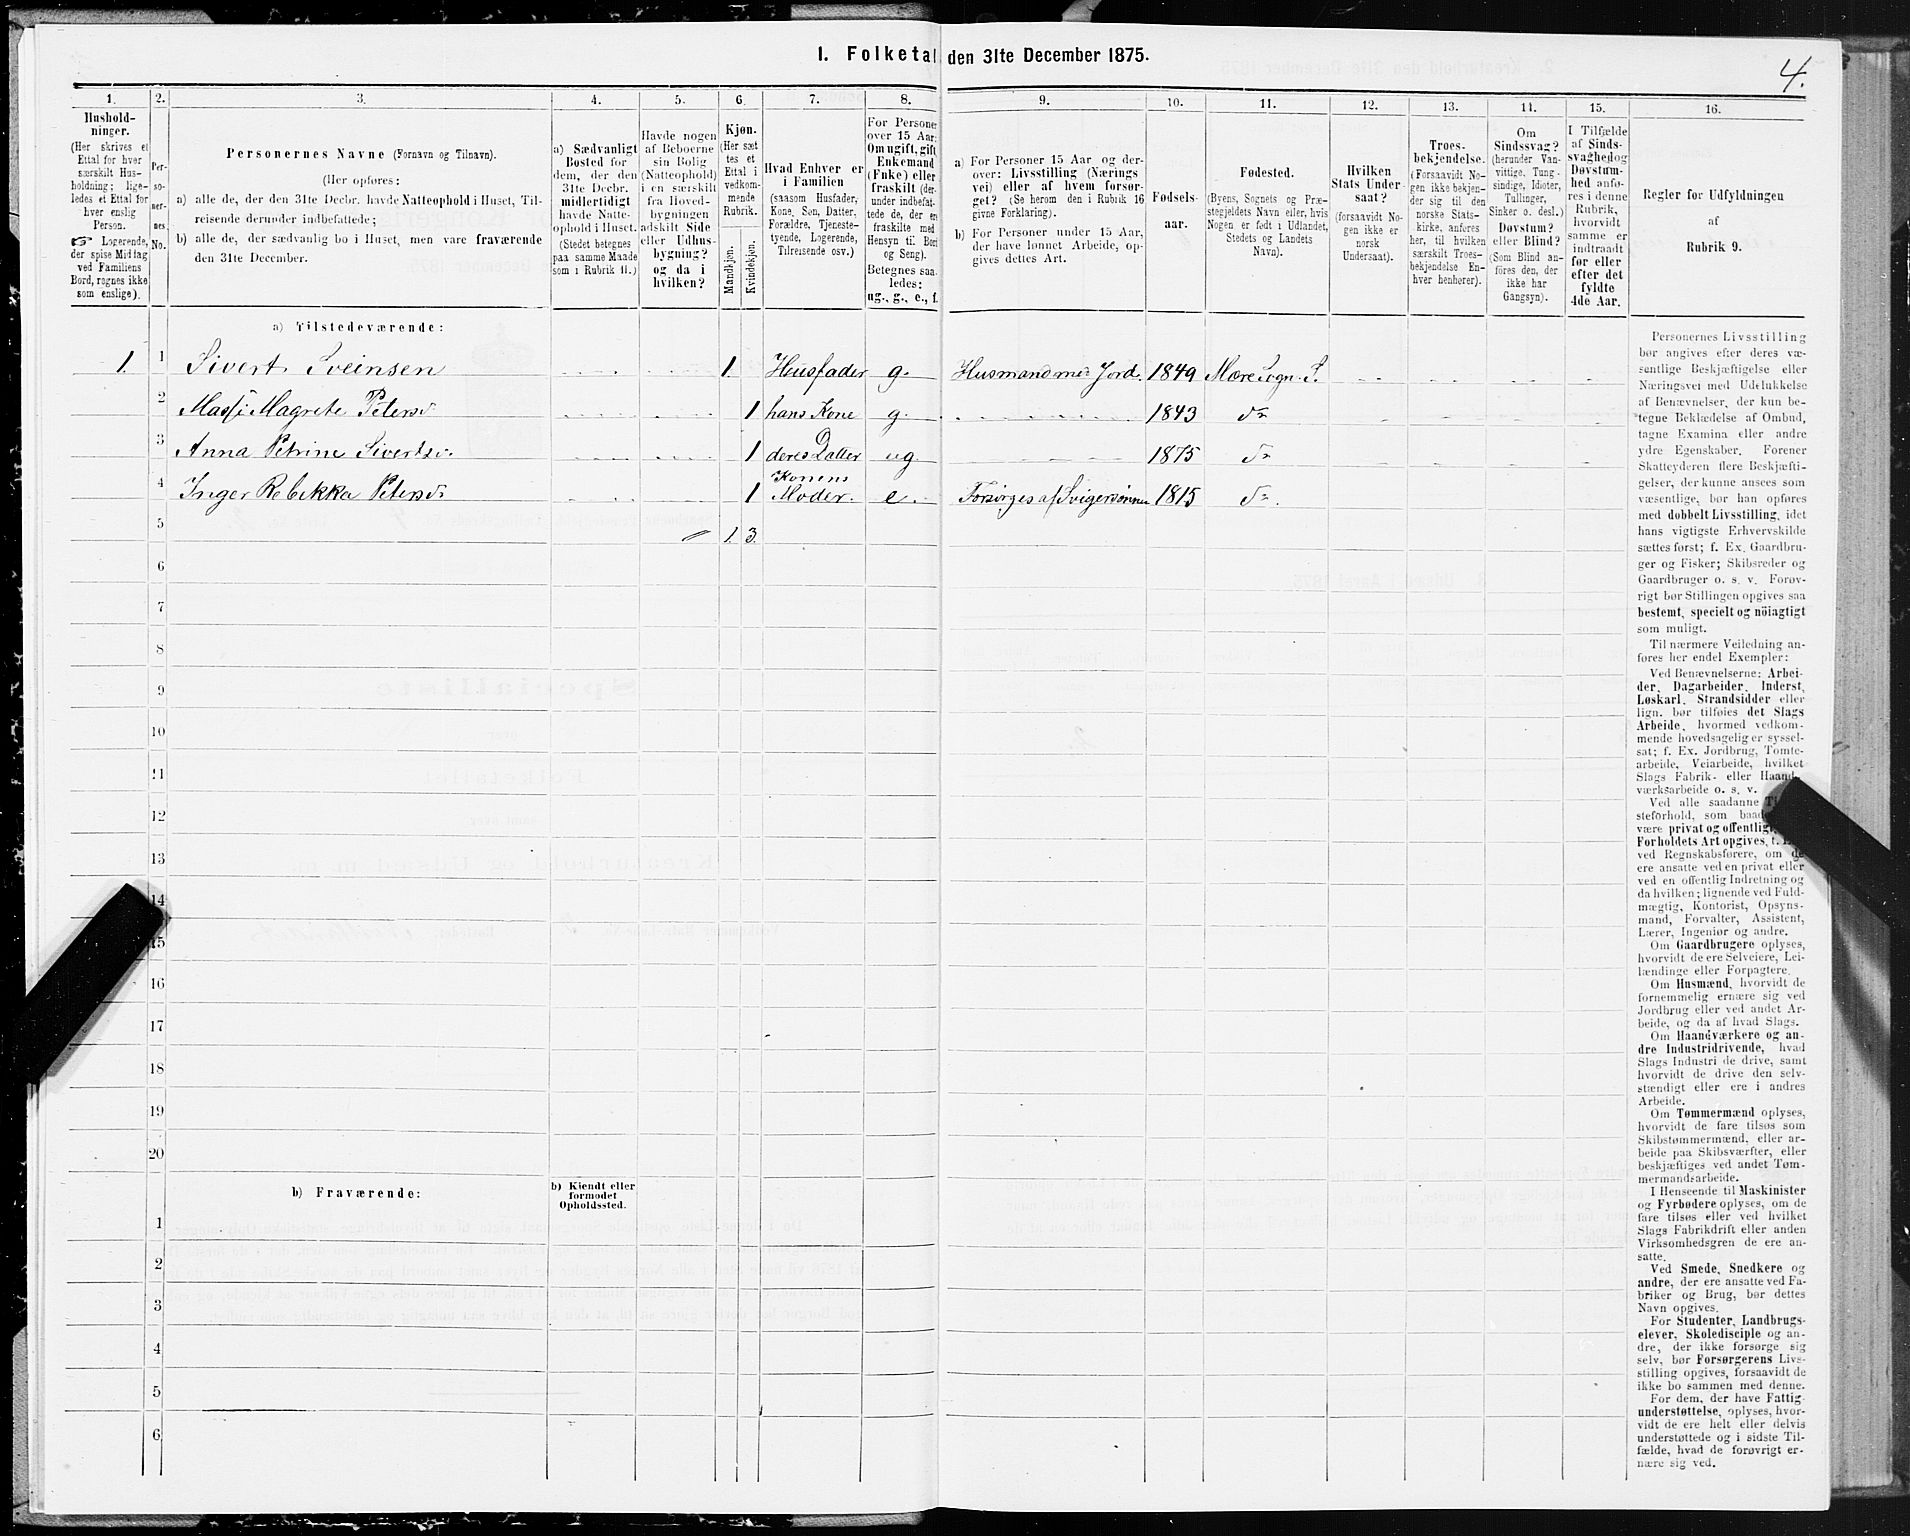 1. Folketal den 31te December 1875.
4.
1. 2. 3. 4. 5. 6. 7. 8. 9. 10. 11. 12. 13. 14. 15. 16.
Hushold-
ninger.
(Her skrives et
Ettal for hver
særskilt Hus-
holdning; lige-
ledes et Ettal for
hver enslig
Person.
☞ Logerende,
der spise Middag
ved Familiens
Bord, regnes ikke
som enslige).
Per-
so-
ner-
nes
No.
Personernes Navne (Fornavn og Tilnavn).
(Her opføres:
a) alle de, der den 31te Decbr. havde Natteophold i Huset, Til-
reisende derunder indbefattede;
b) alle de, der sædvanlig bo i Huset, men vare fraværende
den 31te December.
a) Sædvanligt
Bosted for
dem, der den
31te Decbr.
midlertidigt
havde Natte-
ophold i Huset.
(Stedet betegnes
paa samme Maade
som i Rubrik 11.)
Havde nogen
af Beboerne
sin Bolig
(Natteophold)
i en særskilt
fra Hoved-
bygningen
adskilt Side
eller Udhus-
bygning?
og da i
hvilken?
Kjøn.
(Her sæt
tes et
Ettal i
vedkom-
mende
Rubrik.
Mandkjøn.
Kvindekjøn.
Hvad Enhver er
i Familien
(saasom Husfader,
Kone, Søn, Datter,
Forældre, Tjeneste-
tyende, Logerende,
Tilreisende osv.)
For Personer
over 15 Aar:
Om ugift, gift,
Enkemand
(Enke) eller
fraskilt (der-
under indbefat-
tede de, der ere
fraskilte med
Hensyn til Bord
og Seng).
Betegnes saa-
ledes:
ug., g., e., f.
a) For Personer 15 Aar og der-
over: Livsstilling (Nærings
vei) eller af hvem forsør-
get? (Se herom den i Rubrik 16
givne Forklaring).
b) For Personer under 15 Aar,
der have lønnet Arbeide, op-
gives dettes Art.
Fødsels-
aar.
Fødested.
(Byens, Sognets og Præ-
stegjeldets Navn eller, hvis
Nogen er født i Udlandet,
Stedets og Landets
Navn).
Hvilken
Stats Under-
saat?
(forsaavidt No-
gen ikke er
norsk
Undersaat).
Troes-
bekjendelse.
(Forsaavidt No-
gen ikke bekjen-
der sig til den
norske Stats-
kirke, anføres
her, til hvilken
særskilt Troes-
bekjendelse En-
hver henhører).
Om
Sindssvag?
(herunder Van-
vittige, Tung-
sindige, Idioter,
Tullinger,
Sinker o. desl.)
Døvstum?
eller Blind?
(Som Blind an-
føres den, der
ikke har
Gangsyn).
I Tilfælde
af Sinds-
svaghed og
Døvstum-
hed anfø-
res i denne
Rubrik,
hvorvidt
samme er
indtraadt
før eller
efter det
fyldte
4de Aar.
Regler for Udfyldningen
af
Rubrik 9.
a) Tilstedeværende:
1. 1 Sivert Sveinsen 1. Husfader g. Husmand med Jord. 1849 Mære Sogn. S.
2 Massi Magrete Petersd. 1 hans Kone g. 1843 do
3 Anna Petrine Sivertsd. 1 deres Datter ug. 1875 do
4 Inger Rebekka Petersd. 1 Konens Moder. e. Forsørges af Svigersønnen 1815 do.
5 1. 3.
6
7
8
9
10
11
12
13
14
15
16
17
18
19
20
b) Fraværende:
b) Kjendt eller
formodet
Opholdssted.
1
2
3
4
5
6
Personernes Livsstilling
bør angives efter deres væ-
sentlige Beskjæftigelse eller
Næringsvei med Udelukkelse
af Benævnelser, der kun be-
tegne Beklædelse af Ombud,
tagne Examina eller andre
ydre Egenskaber. Forener
Skatteyderen flere Beskjæfti-
gelser, der kunne ansees som
væsentlige, bør han opføres
med dobbelt Livsstilling, idet
hans vigtigste Erhvervskilde
sættes først; f. Ex. Gaardbru-
ger og Fisker; Skibsreder og
Gaardbruger o. s. v. Forøv-
rigt bør Stillingen opgives saa
bestemt, specielt og nöiagtigt
som muligt.
Til nærmere Veiledning an-
føres her endel Exempler:
Ved Benævnelserne: Arbei-
der, Dagarbeider, Inderst,
Løskarl, Strandsidder eller
lign. bør tilføies det Slags
Arbeide, hvormed vedkom-
mende hovedsagelig er syssel-
sat; f. Ex. Jordbrug, Tomte-
arbeide, Veiarbeide, hvilket
Slags Fabrik- eller Haand-
værksarbeide o. s. v.
Ved alle saadanne
steforhold, som
være privat og offentlig,
Forholdets Art opgives,
ved Regnskabsførere, om de
ere ansatte ved en privat eller
ved en offentlig Indretning og
da hvilken; lignende ved Fuld-
mægtig, Kontorist, Opsyns-
mand, Forvalter, Assistent,
Lærer, Ingeniør og andre.
Om Gaardbrugere oplyses,
hvorvidt de ere Selveiere, Lei-
lændinge eller Forpagtere.
Om Husmænd, hvorvidt de
fornemmelig ernære sig ved
Jordbrug eller ved andet Ar-
beide, og da af hvad Slags.
Om Haandværkere og an-
dre Industridrivende, hvad
Slags Industri de drive, samt
hvorvidt de drive den selv-
stændigt eller ere i andres
Arbeide.
Om Tømmermænd oplyses,
hvorvidt de fare tilsøs som
Skibstømmermænd, eller ar-
beide paa Skibsværfter, eller
beskjæftiges ved andet Tøm-
mermandsarbeide.
I Henseende til Maskinister
og Fyrbødere oplyses, om de
fare tilsøs eller ved hvilket
Slags Fabrikdrift eller anden
Virksomhedsgren de ere an-
satte.
Ved Smede, Snedkere og
andre, der ere ansatte ved Fa-
briker og Brug, bør dettes
Navn opgives.
For Studenter, Landbrugs-
elever, Skoledisciple og an-
dre, der ikke forsørge sig
selv, bør Forsørgerens Livs-
stilling opgives, forsaavidt de
ikke bo sammen med denne.
For dem, der have Fattig-
understøttelse, oplyses, hvor-
vidt de ere helt eller delvis
understøttede og i sidste Til-
fælde, hvad de forøvrigt er-
nære sig ved.